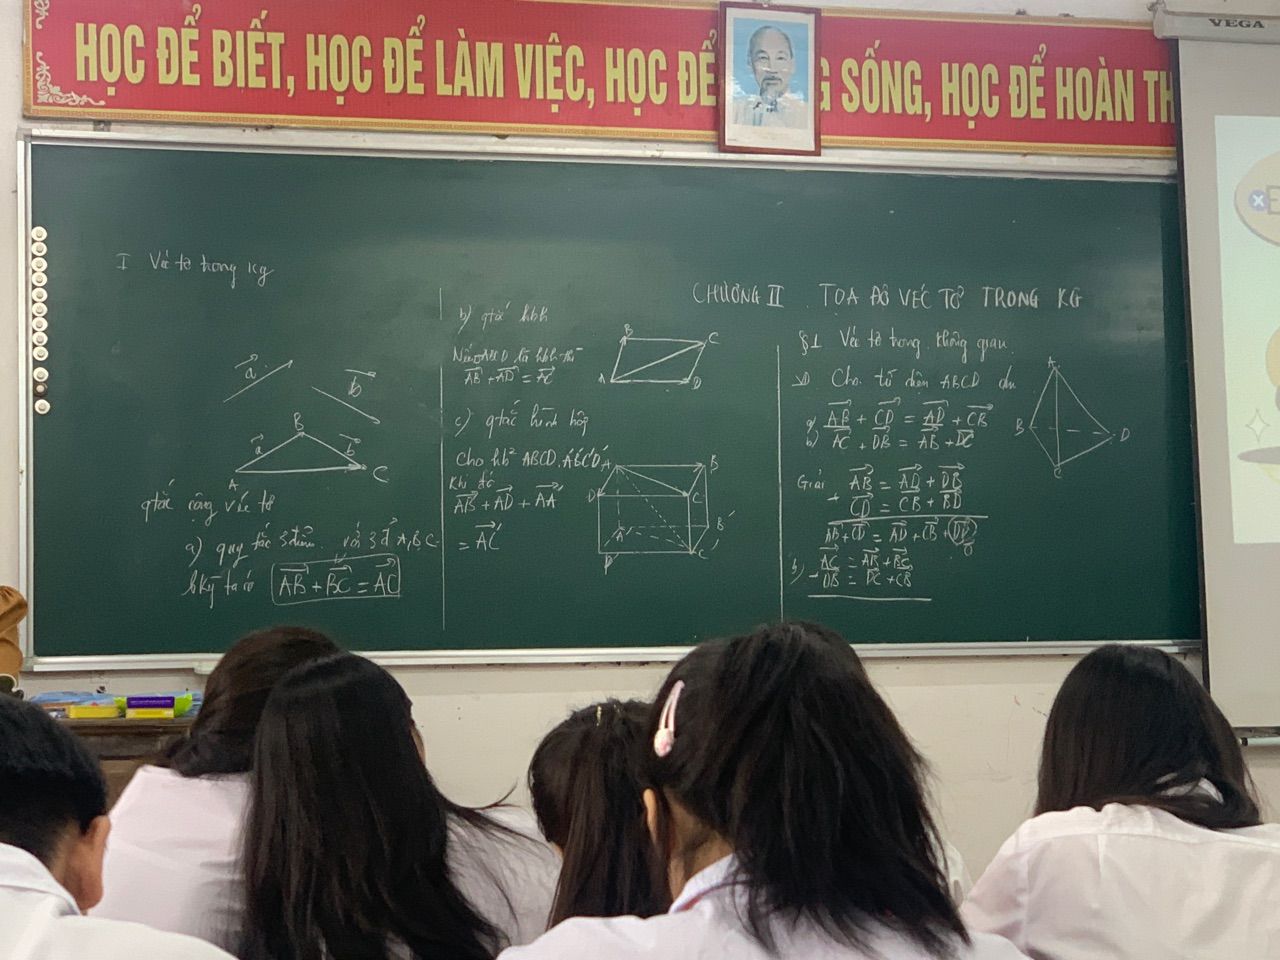 HỌC ĐỂ BIẾT, HỌC ĐỂ LÀM VIỆC, HỌC ĐỂ G SỐNG, HỌC ĐỂ HOÀN TH
VEGA
I Véc tơ trong kg
a
b
B
a
b
A
C
qtắc cộng véc tơ
a) quy tắc 3 điểm với 3 đ A, B, C
bkỳ ta có AB + BC = AC
b) qtắc hbh
Nếu ABCD là hbh thì
AB + AD = AC
B
C
A
D
c) qtắc hình hộp
Cho hh ABCD.A'B'C'D'
Khi đó
AB + AD + AA'
= AC'
A
B
D
C
A'
B'
D'
C'
CHƯƠNG II TỌA ĐỘ VÉC TƠ TRONG KG
§1 Véc tơ trong không gian
Cho tứ diện ABCD
a) AB + CD = AD + CB
b) AC + DB = AB + DC
A
B
D
C
Giải AB = AD + DB
+ CD = CB + BD
AB + CD = AD + CB +
b) AC = AB + BC
DB = DC + CB